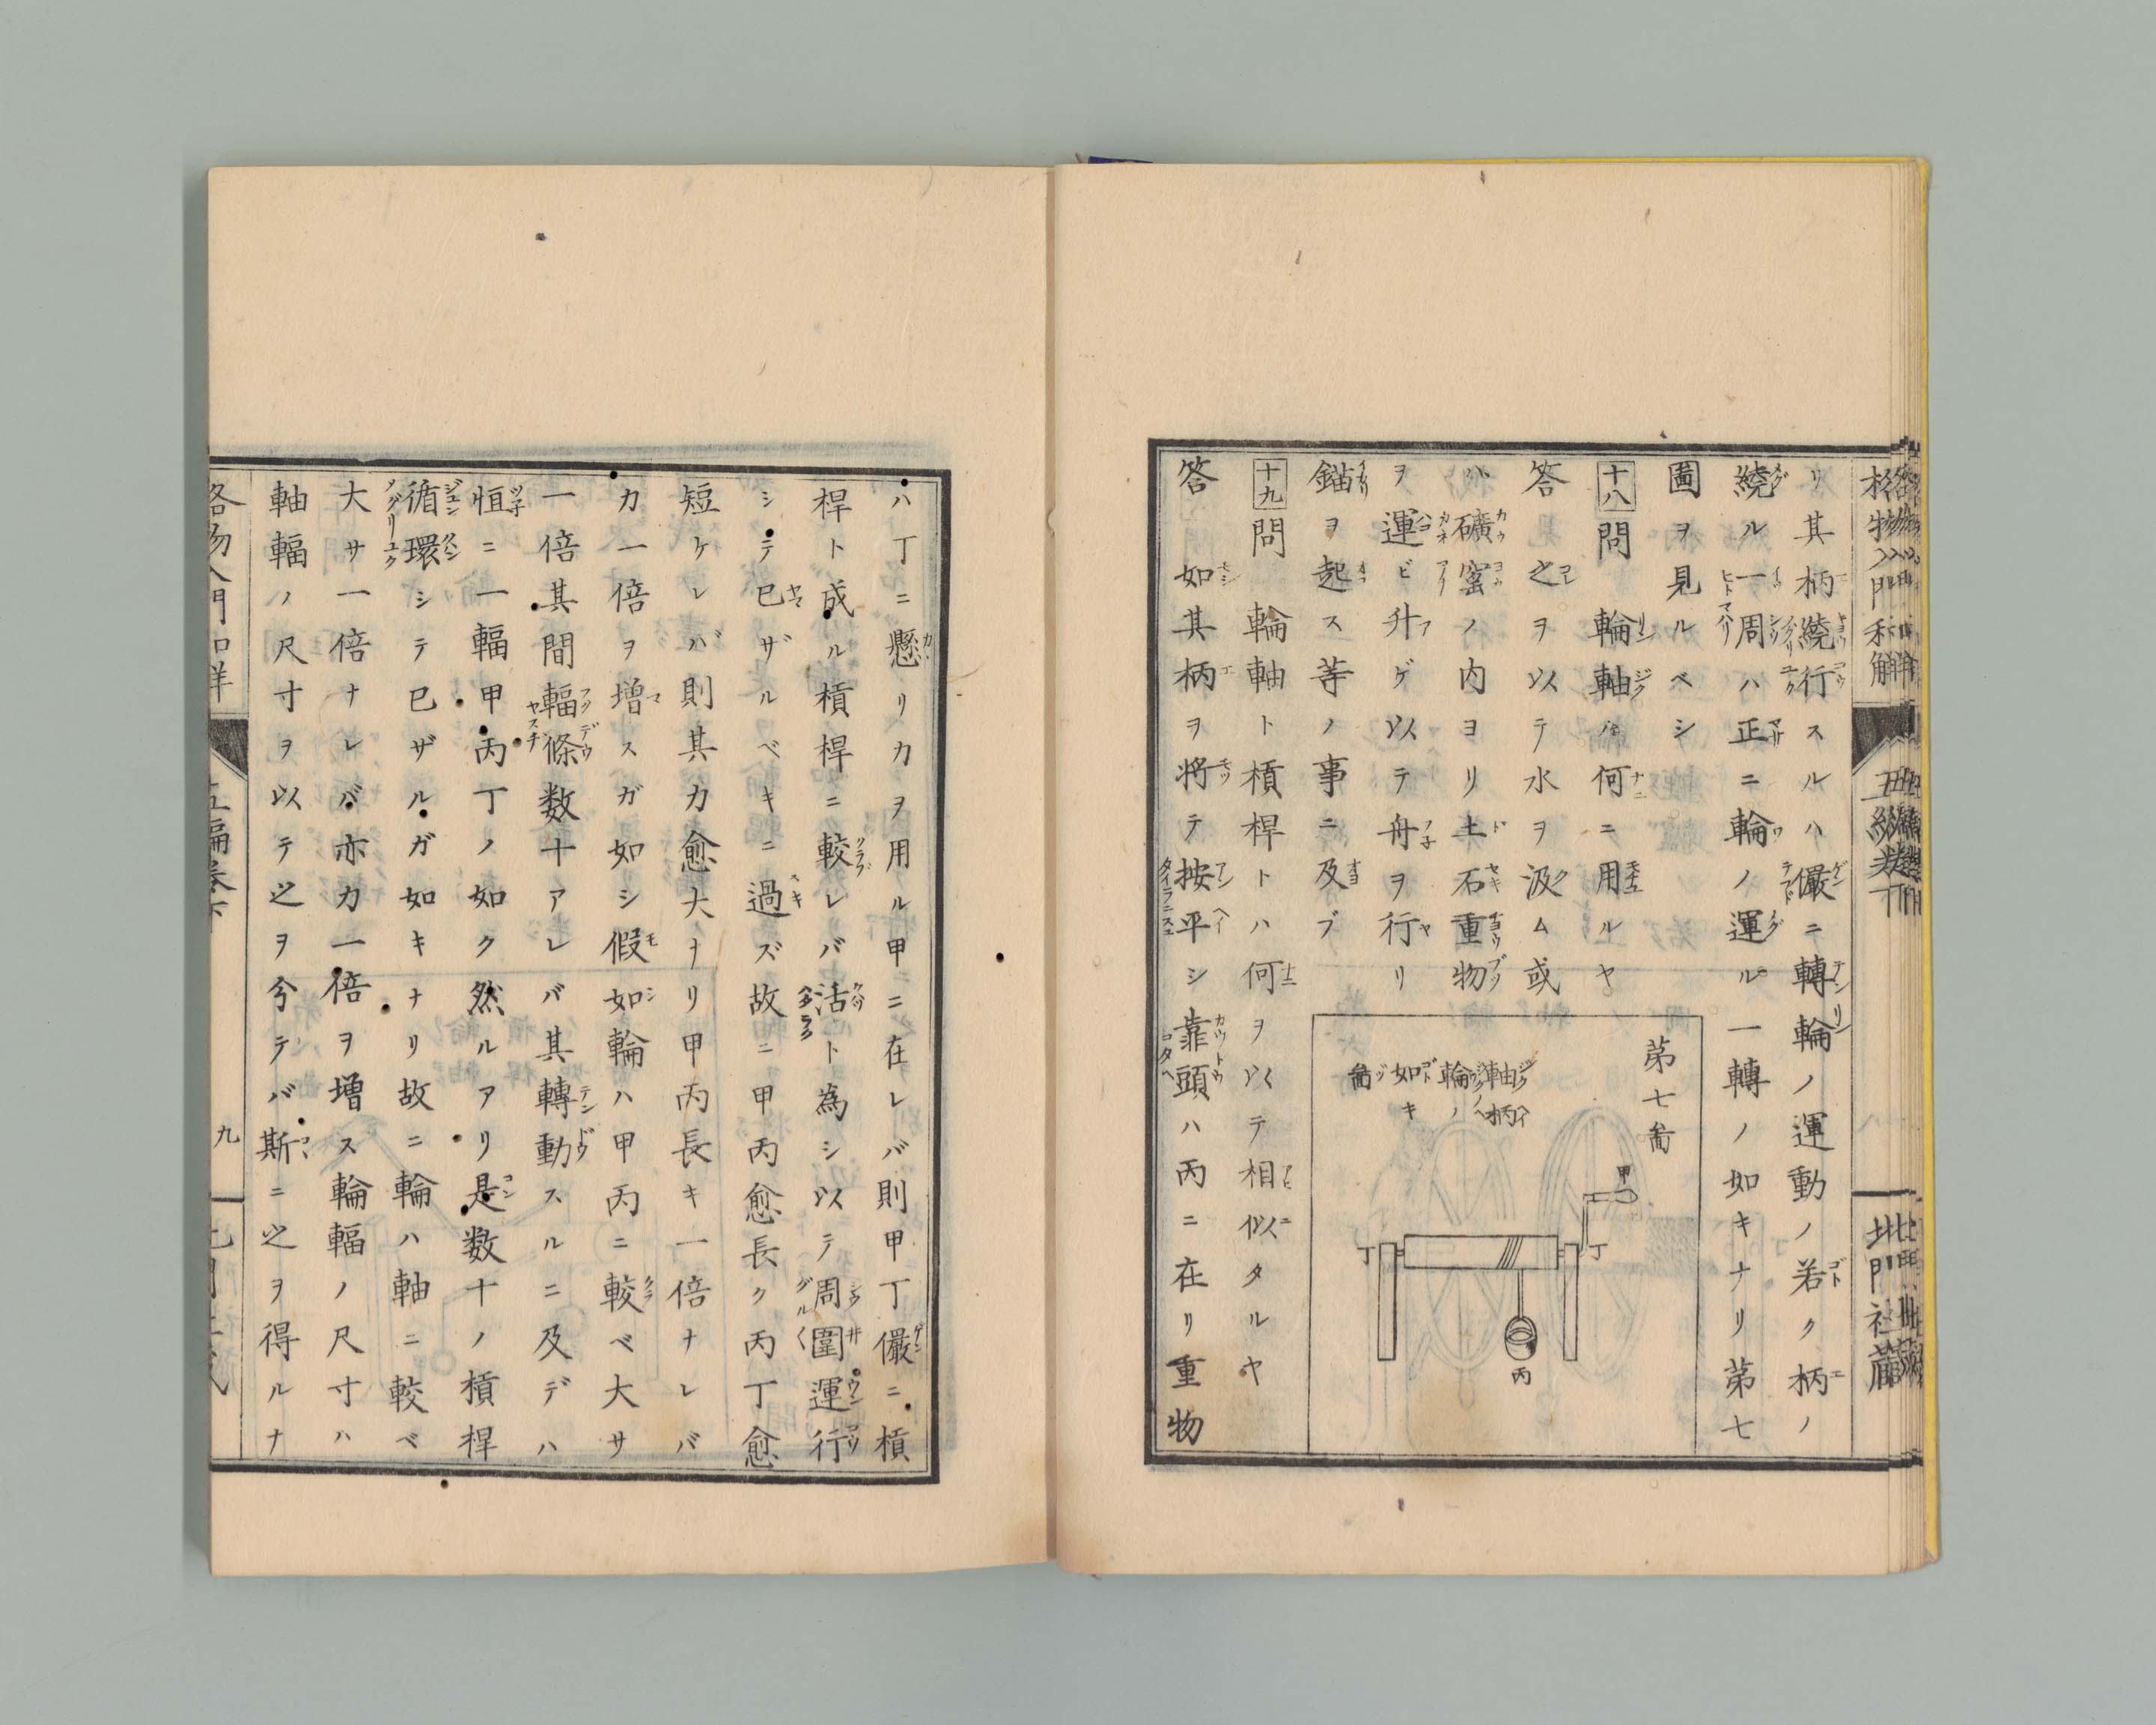 格物入門和解
五編巻下
北門社藏
リ其柄繞行スルハ儼ニ轉輪ノ運動ノ若ク柄ノ
繞ル一周ハ正ニ輪ノ運ル一轉ノ如キナリ第七
圖ヲ見ルベシ
十八問 輪軸ハ何ニ用ルヤ
答 之ヲ以テ水ヲ汲ム或
ハ礦窑ノ内ヨリ土石重物
ヲ運ビ升ゲ以テ舟ヲ行リ
錨ヲ起ス等ノ事ニ及ブ
第七啚
軸柄
輪ノ
如キ
啚
甲
丁
丁
丙
十九問 輪軸ト槓桿トハ何ヲ以テ相似タルヤ
答 如其柄ヲ将テ按平シ靠頭ハ丙ニ在リ重物
ハ丁ニ懸リカヲ用ル甲ニ在レバ則甲丁儼ニ槓
桿ト成ル槓桿ニ較レバ活ト為シ以テ周圍運行
シテ已ザルベキニ過ズ故ニ甲丙愈長ク丙丁愈
短ケレバ則其力愈大ナリ甲丙長キ一倍ナレバ
カ一倍ヲ増スガ如シ假如輪ハ甲丙ニ較ベ大サ
一倍其間輻條数十アレバ其轉動スルニ及デハ
恒ニ一輻甲丙丁ノ如ク然ルアリ是数十ノ槓桿
循環シテ已ザルガ如キナリ故ニ輪ハ軸ニ較ベ
大サ一倍ナレバ亦力一倍ヲ増ス輪輻ノ尺寸ハ
軸輻ノ尺寸ヲ以テ之ヲ兮テバ斯ニ之ヲ得ルナ
九